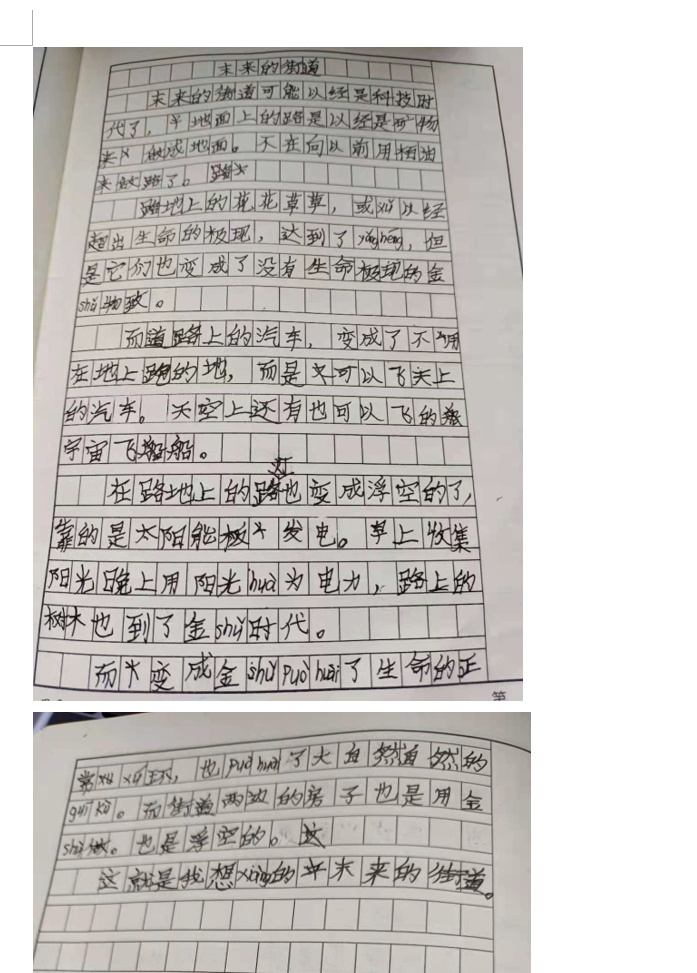 未来的街道
未来的街道可能以经是科技时
代了，平地面上的路是以经是矿物
来做成地面。不在向以前用柏油
来做路了。
路地上的花花草草，或xǔ以经
超出生命的极现，达到了yǒnghéng，但
是它们也变成了没有生命极现的金
shǔ物致。
而道路上的汽车，变成了不用
在地上跑的地，而是可以飞天上
的汽车。天空上还有也可以飞的
宇宙飞船。
在路地上的路灯也变成浮空的了，
靠的是太阳能板发电。早上收集
阳光晚上用阳光huà为电力，路上的
树木也到了金shǔ时代。
而变成金shǔ pòhuài了生命的正
常xún环，也pòhuài了大自然的
guīlǜ。而街道两边的房子也是用金
shǔ做。也是浮空的。
这就是我想xiàng的未来的街道。
第